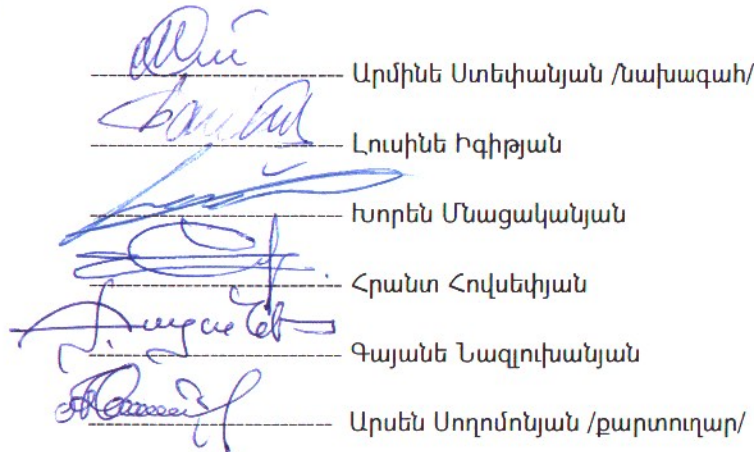 Արմինե Ստեփանյան /նախագահ/
Լուսինե Իգիթյան
Խորեն Մնացականյան
Հրանտ Հովսեփյան
Գայանե Նազլուխանյան
Արսեն Սողոմոնյան /քարտուղար/